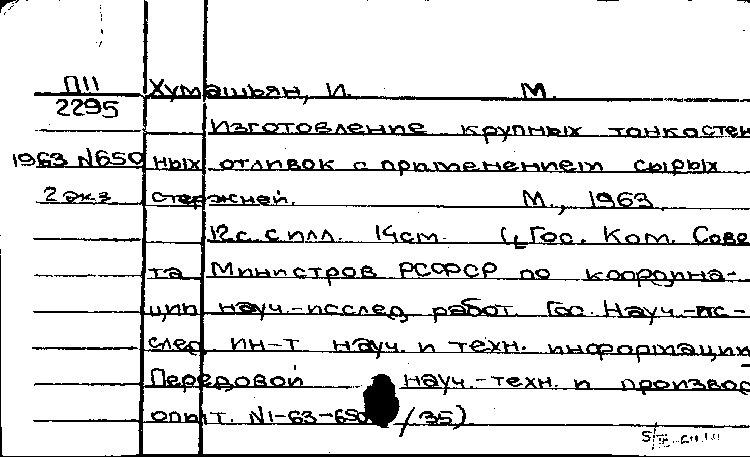 П11 Хумашьян, И. М.
2295
Изготовление крупных тонкостен
1963 N650 ных отливок с применением сырых
2 экз стержней. М., 1963
12с. с илл. 14см. (Гос. Ком. Сове
та Министров РСФСР по координа-
ции науч.-исслед работ. Гос. Науч.-ис-
след ин-т науч. и техн. информации
Передовой науч.-техн. и производ
опыт. N1-63-650 /35)